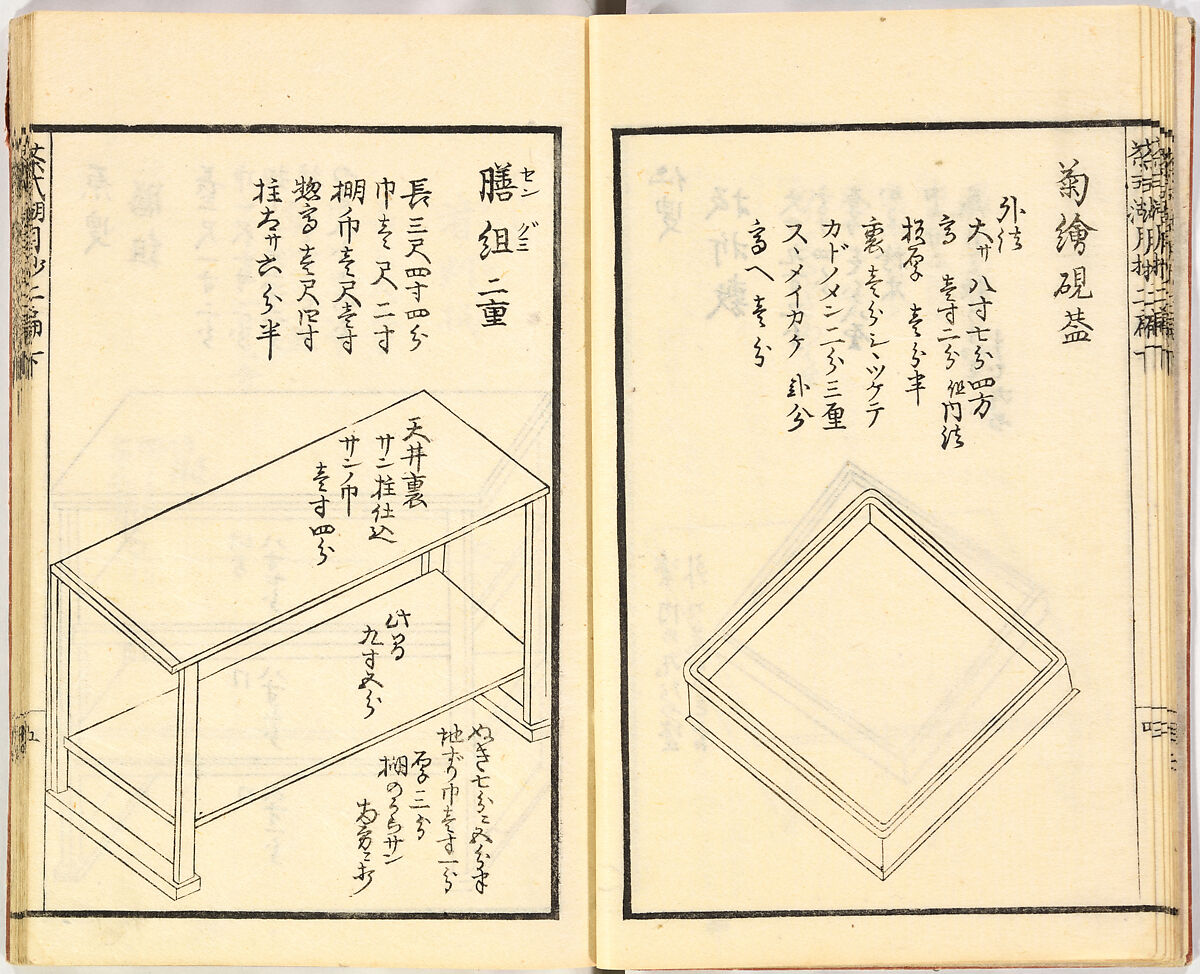 菊繪硯葢
外法
大サ八寸七分四方
高 壱寸二分 但内法
板厚 壱分半
裏壱分シヽツケテ
カドノメン二分三厘
スヽメイカケ 卦分
高ヘ壱分
膳組 二重
セングミ
長三尺四寸四分
巾壱尺二寸
棚巾壱尺壱寸
惣高壱尺四寸
柱太サ六分半
天井裏
サン柱仕込
サンノ巾
壱寸四分
此間
九寸五分
ぬき七分ニ五分半
地ずり巾壱寸一分
厚三分
棚のうらサン